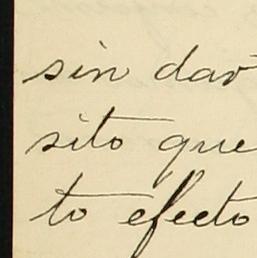 sin dar
sito que
to efecto